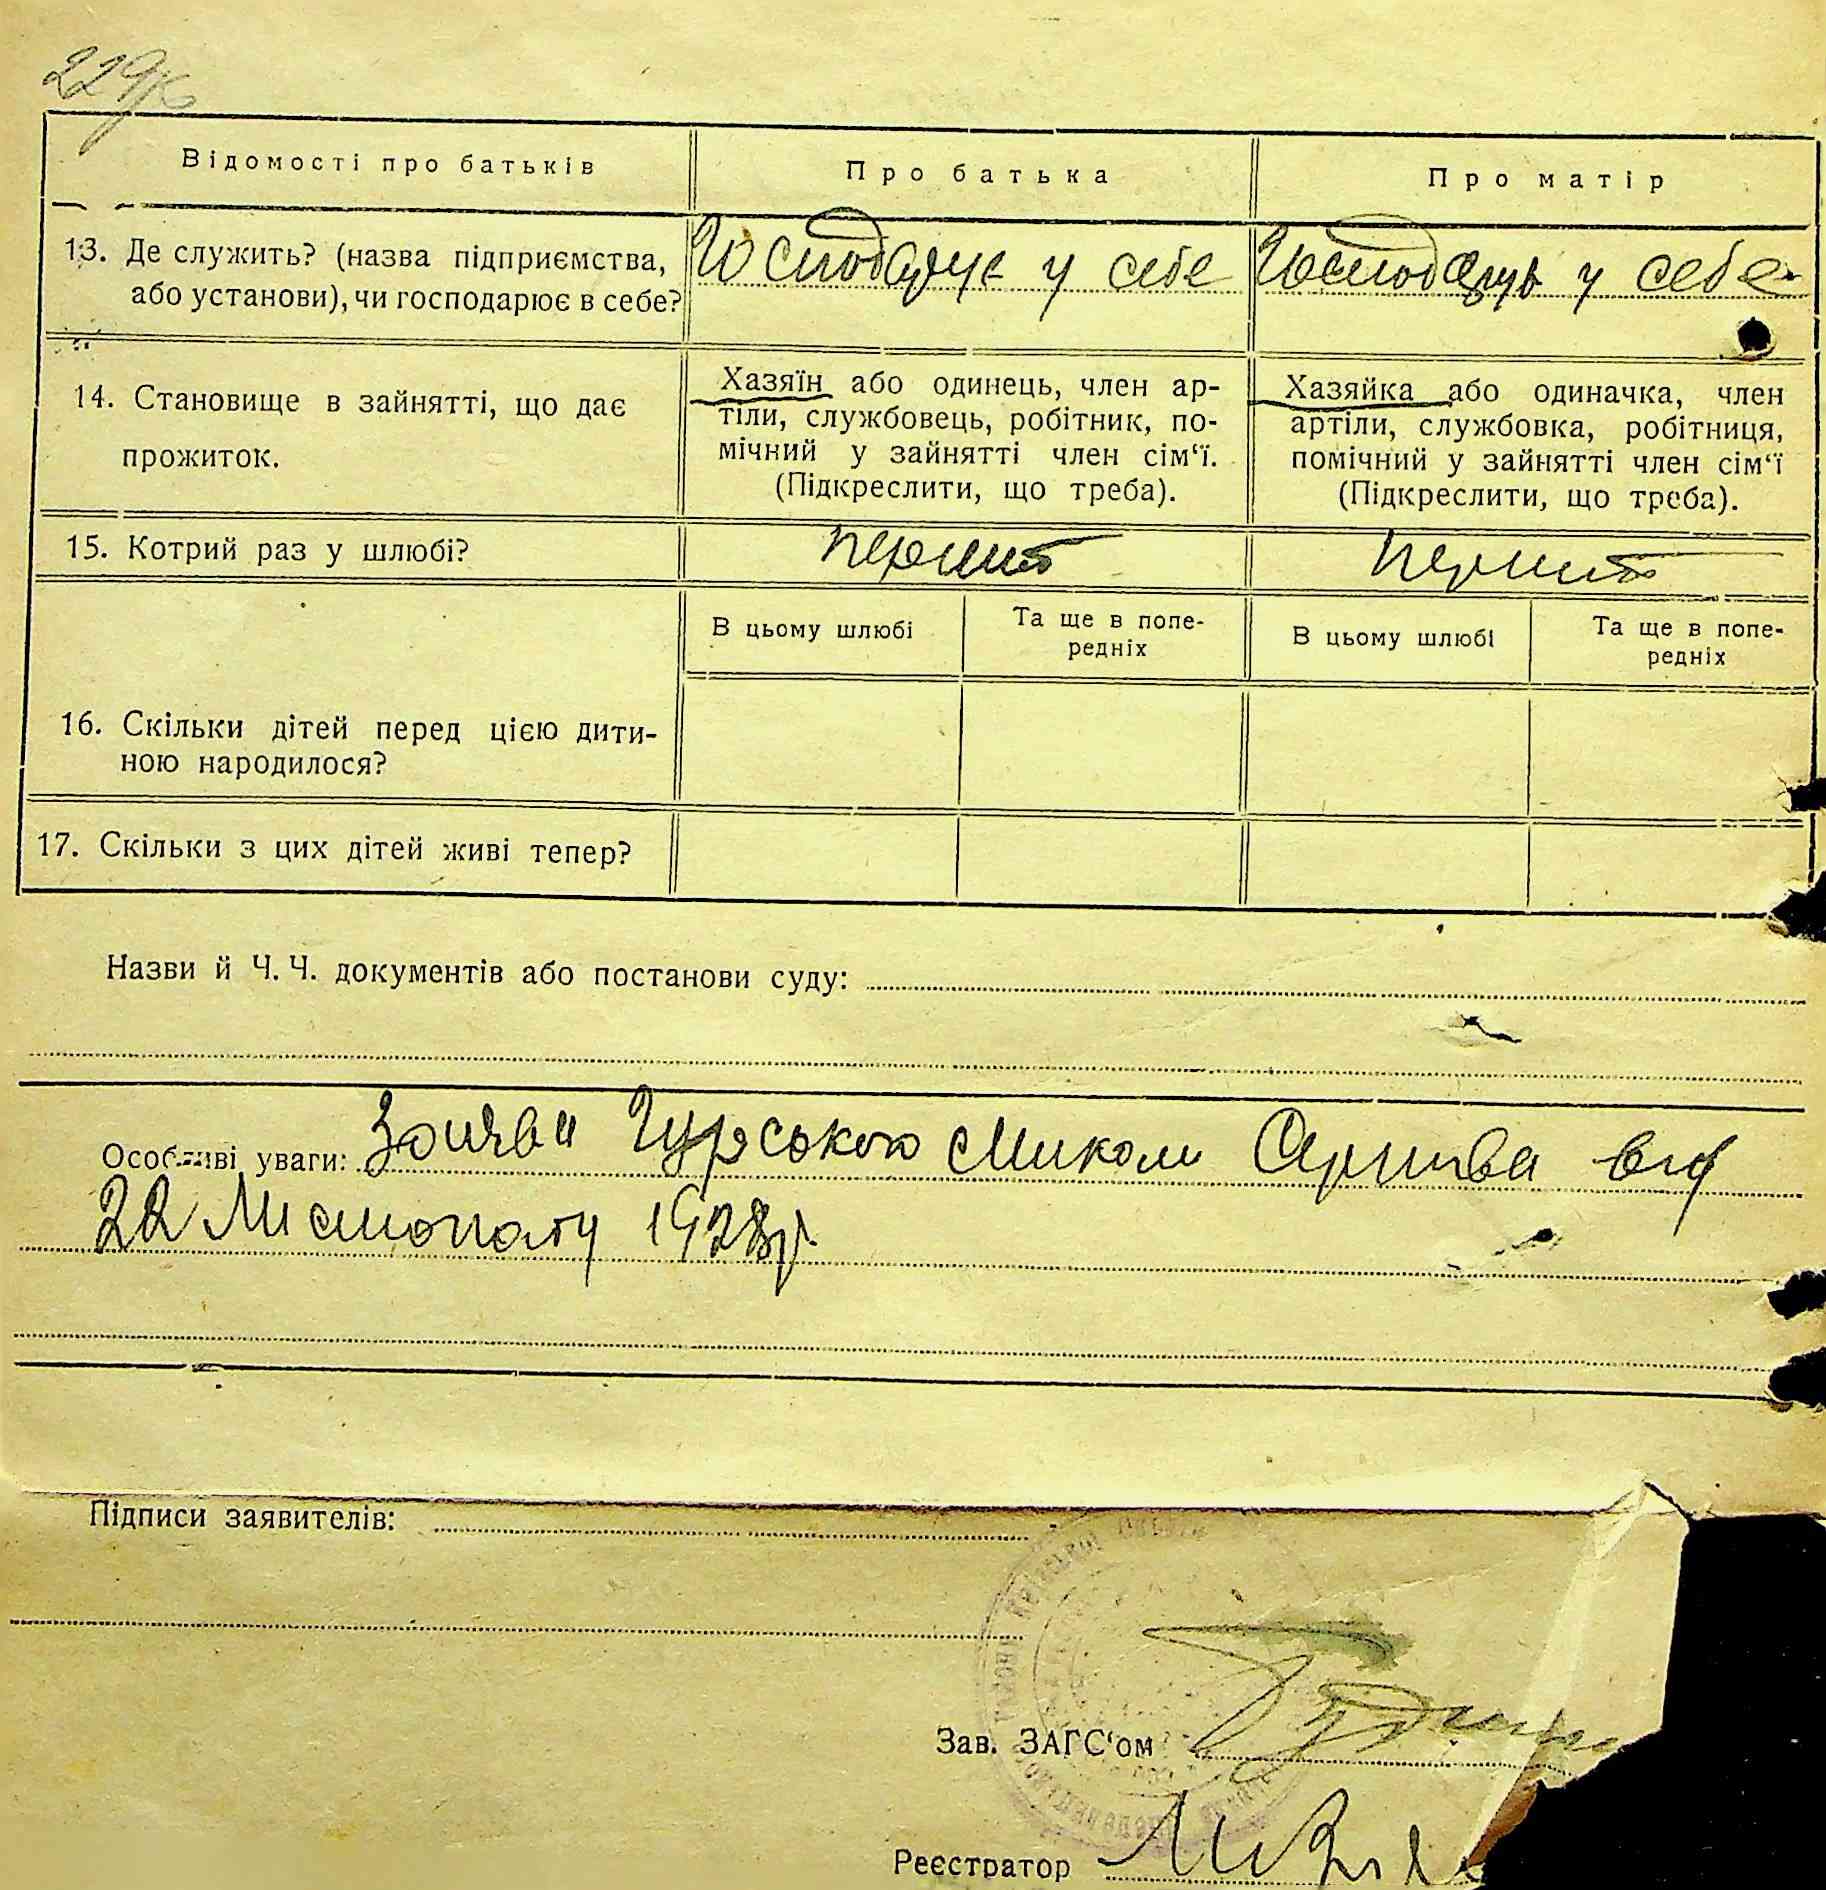 229
Відомості про батьків
Про батька
Про матір
13. Де служить? (назва підприємства,
або установи), чи господарює в себе?
Господарує у себе
Господарує у себе
14. Становище в зайнятті, що дає
прожиток.
Хазяїн або одинець, член ар-
тіли, службовець, робітник, по-
мічний у зайнятті член сім‘ї.
(Підкреслити, що треба).
Хазяйка або одиначка, член
артіли, службовка, робітниця,
помічний у зайнятті член сім‘ї
(Підкреслити, що треба).
15. Котрий раз у шлюбі?
перший
перший
В цьому шлюбі
Та ще в попе-
редніх
В цьому шлюбі
Та ще в попе-
редніх
16. Скільки дітей перед цією дити-
ною народилося?
17. Скільки з цих дітей живі тепер?
Назви й Ч. Ч. документів або постанови суду:
Особливі уваги: Заява Гурського Миколи від
22 Листопаду 1928 р.
Підписи заявителів:
Зав. ЗАГС‘ом
Реєстратор